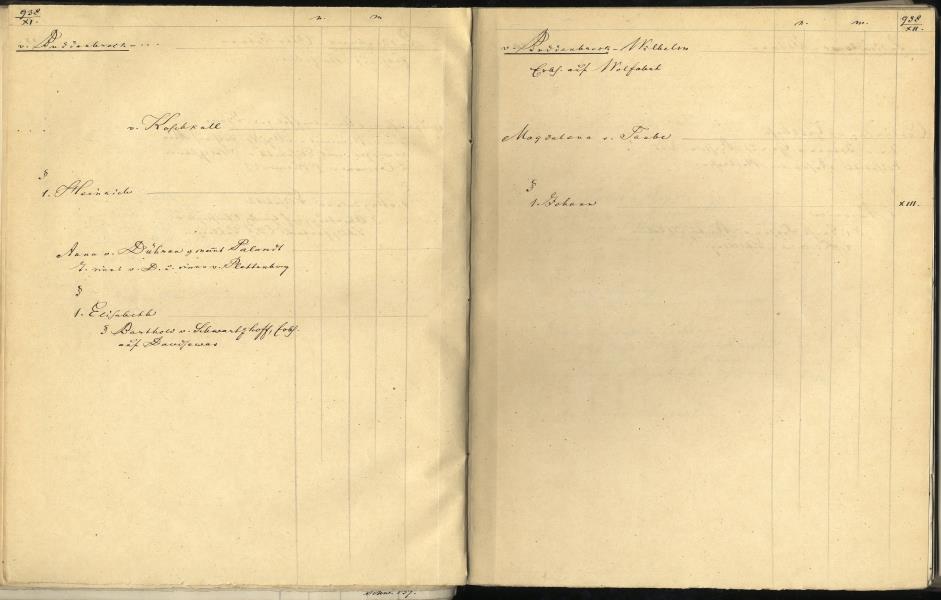 938
XI.
n. m.
v. Buddenbrock - ...
v. Koschkull
§
1. Heinrich
Anna v. Dühren genannt Palandt
T. eines v. D. u. einer v. Plettenberg
§
1. Elisabeth
§ Barthold v. Schwartzhoff, Erbh.
auf
n. m.
938
XII.
v. Buddenbrock - Wilhelm
Erbh. auf
Magdalena v. Taube
§
1. Johann XIII.